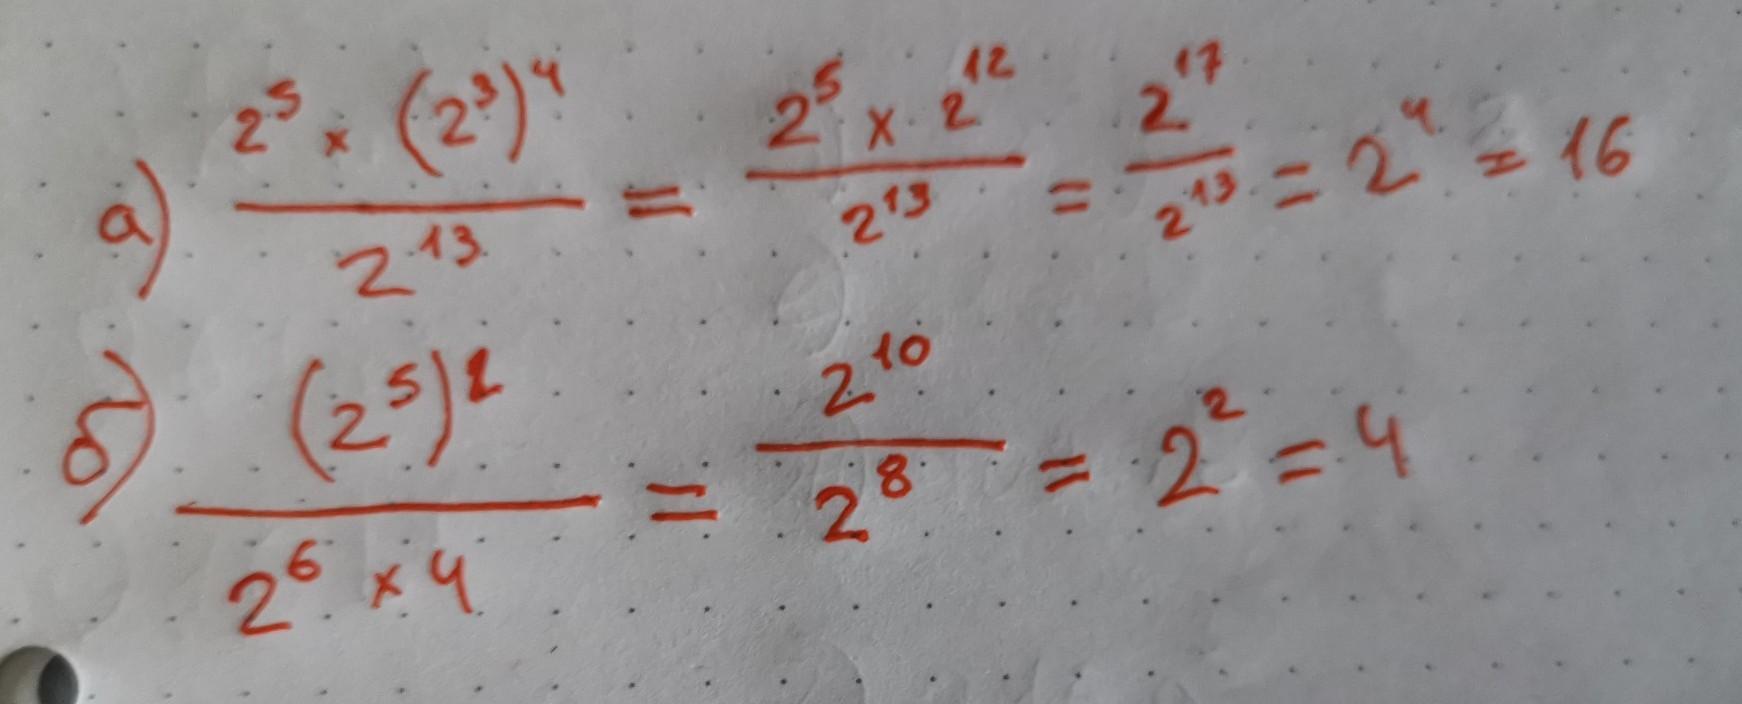 а) (2⁵ × (2³)⁴) / 2¹³ = (2⁵ × 2¹²) / 2¹³ = 2¹⁷ / 2¹³ = 2⁴ = 16
б) (2⁵)² / (2⁶ × 4) = 2¹⁰ / 2⁸ = 2² = 4